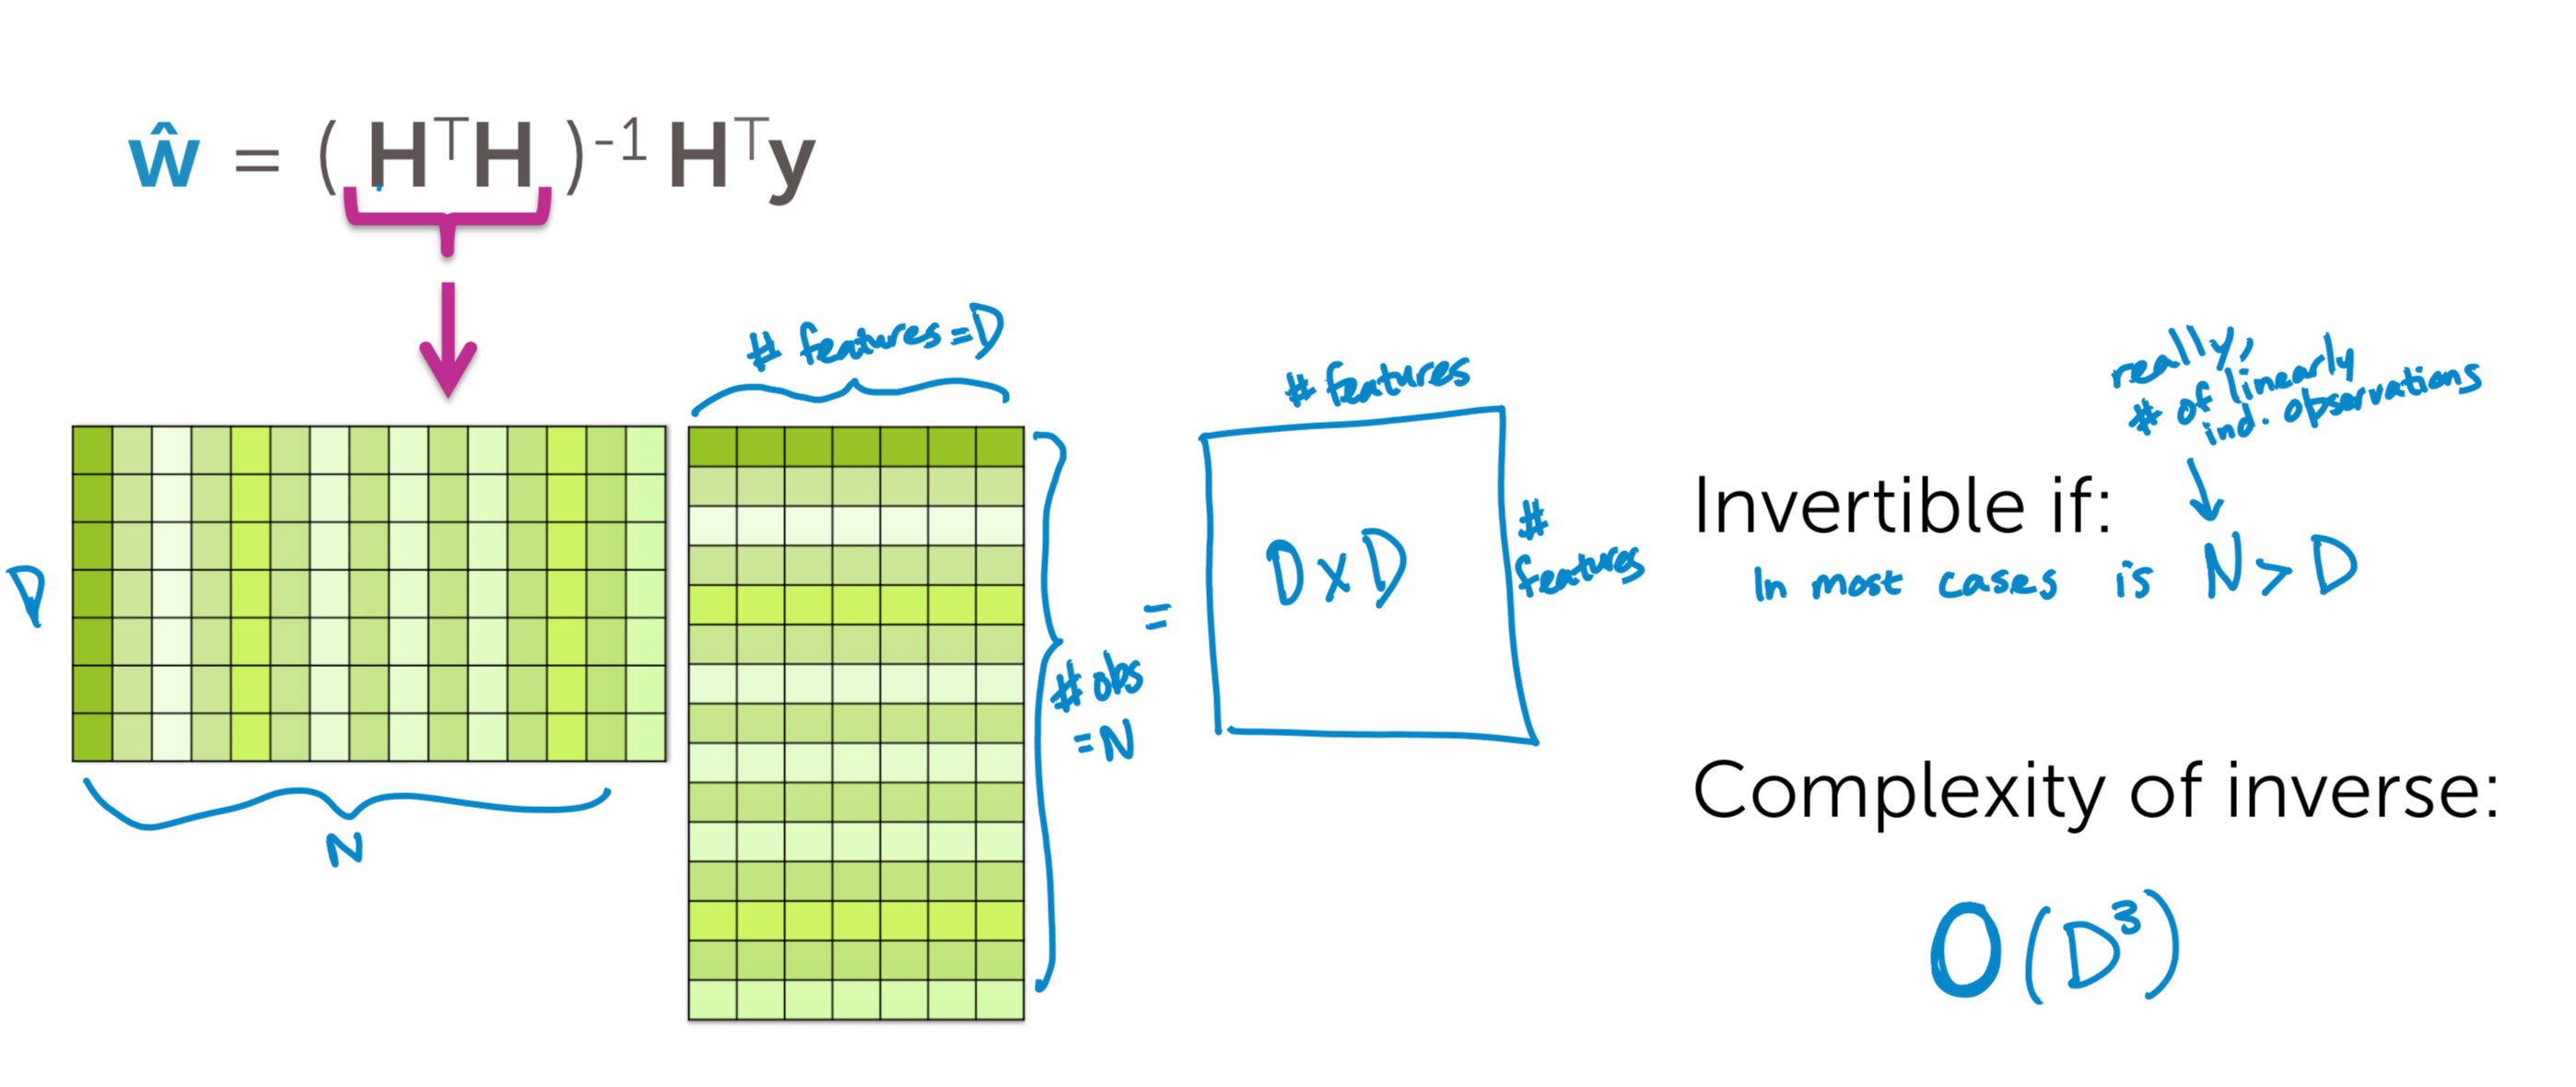 ŵ = ( HᵀH )⁻¹ Hᵀy
# features = D
D
N
# obs
= N
=
# features
D x D
#
features
really,
# of linearly
ind. observations
Invertible if:
In most cases is N > D
Complexity of inverse:
O(D³)